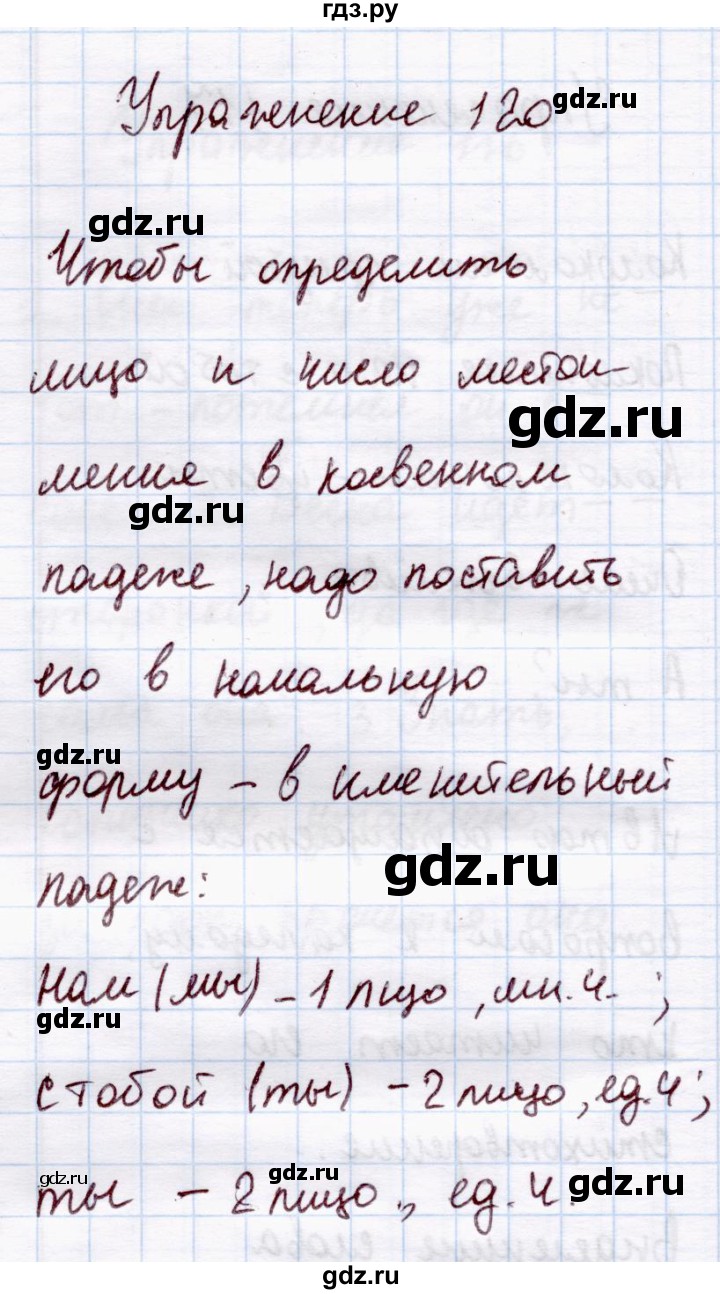 гдз.ру
Упражнение 120
gdz.ru
gdz.ru
Чтобы определить
лицо и число местои-
gdz.ru
мения в косвенном
gdz.ru
падеже, надо поставить
его в намальную
gdz.ru
форму – в именительный
падеж:
gdz.ru
Нам (мы) – 1 лицо, мн.ч. ;
gdz.ru
с тобой (ты) – 2 лицо, ед.ч ;
gdz.ru
gdz.ru
gdz.ru
ты – 2 лицо, ед.ч.
gdz.ru